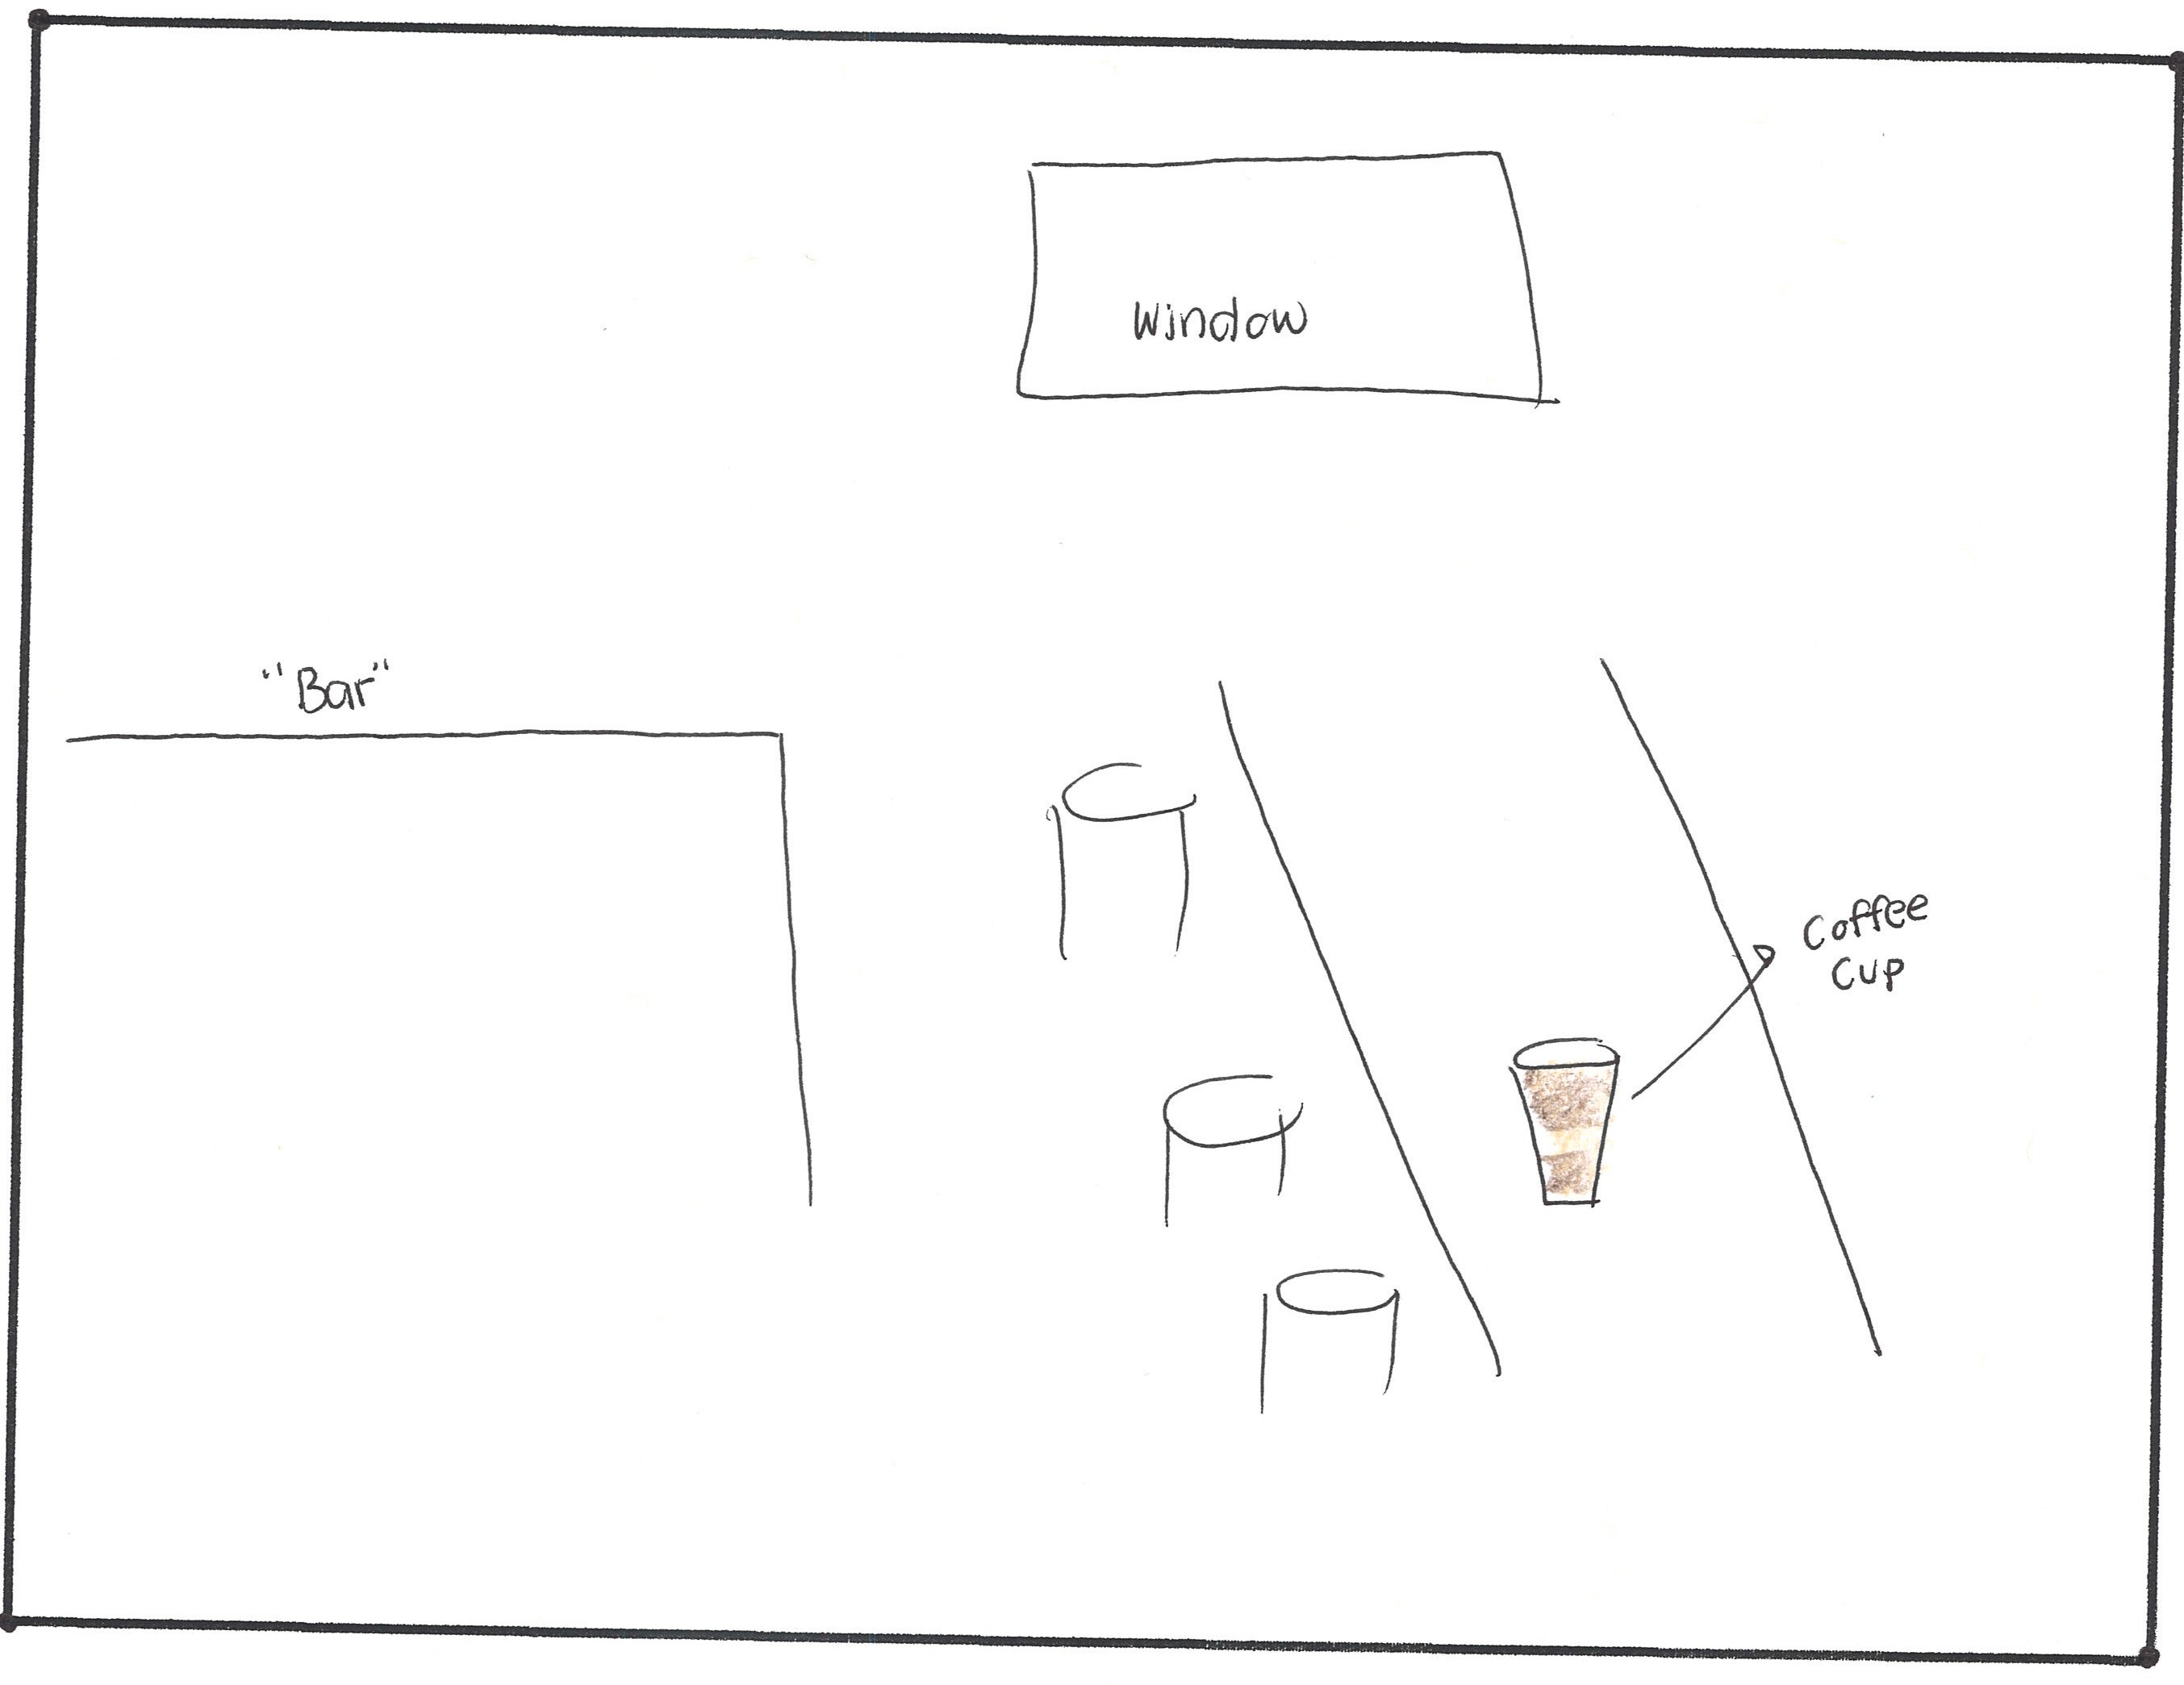 Window
"Bar"
Coffee
Cup